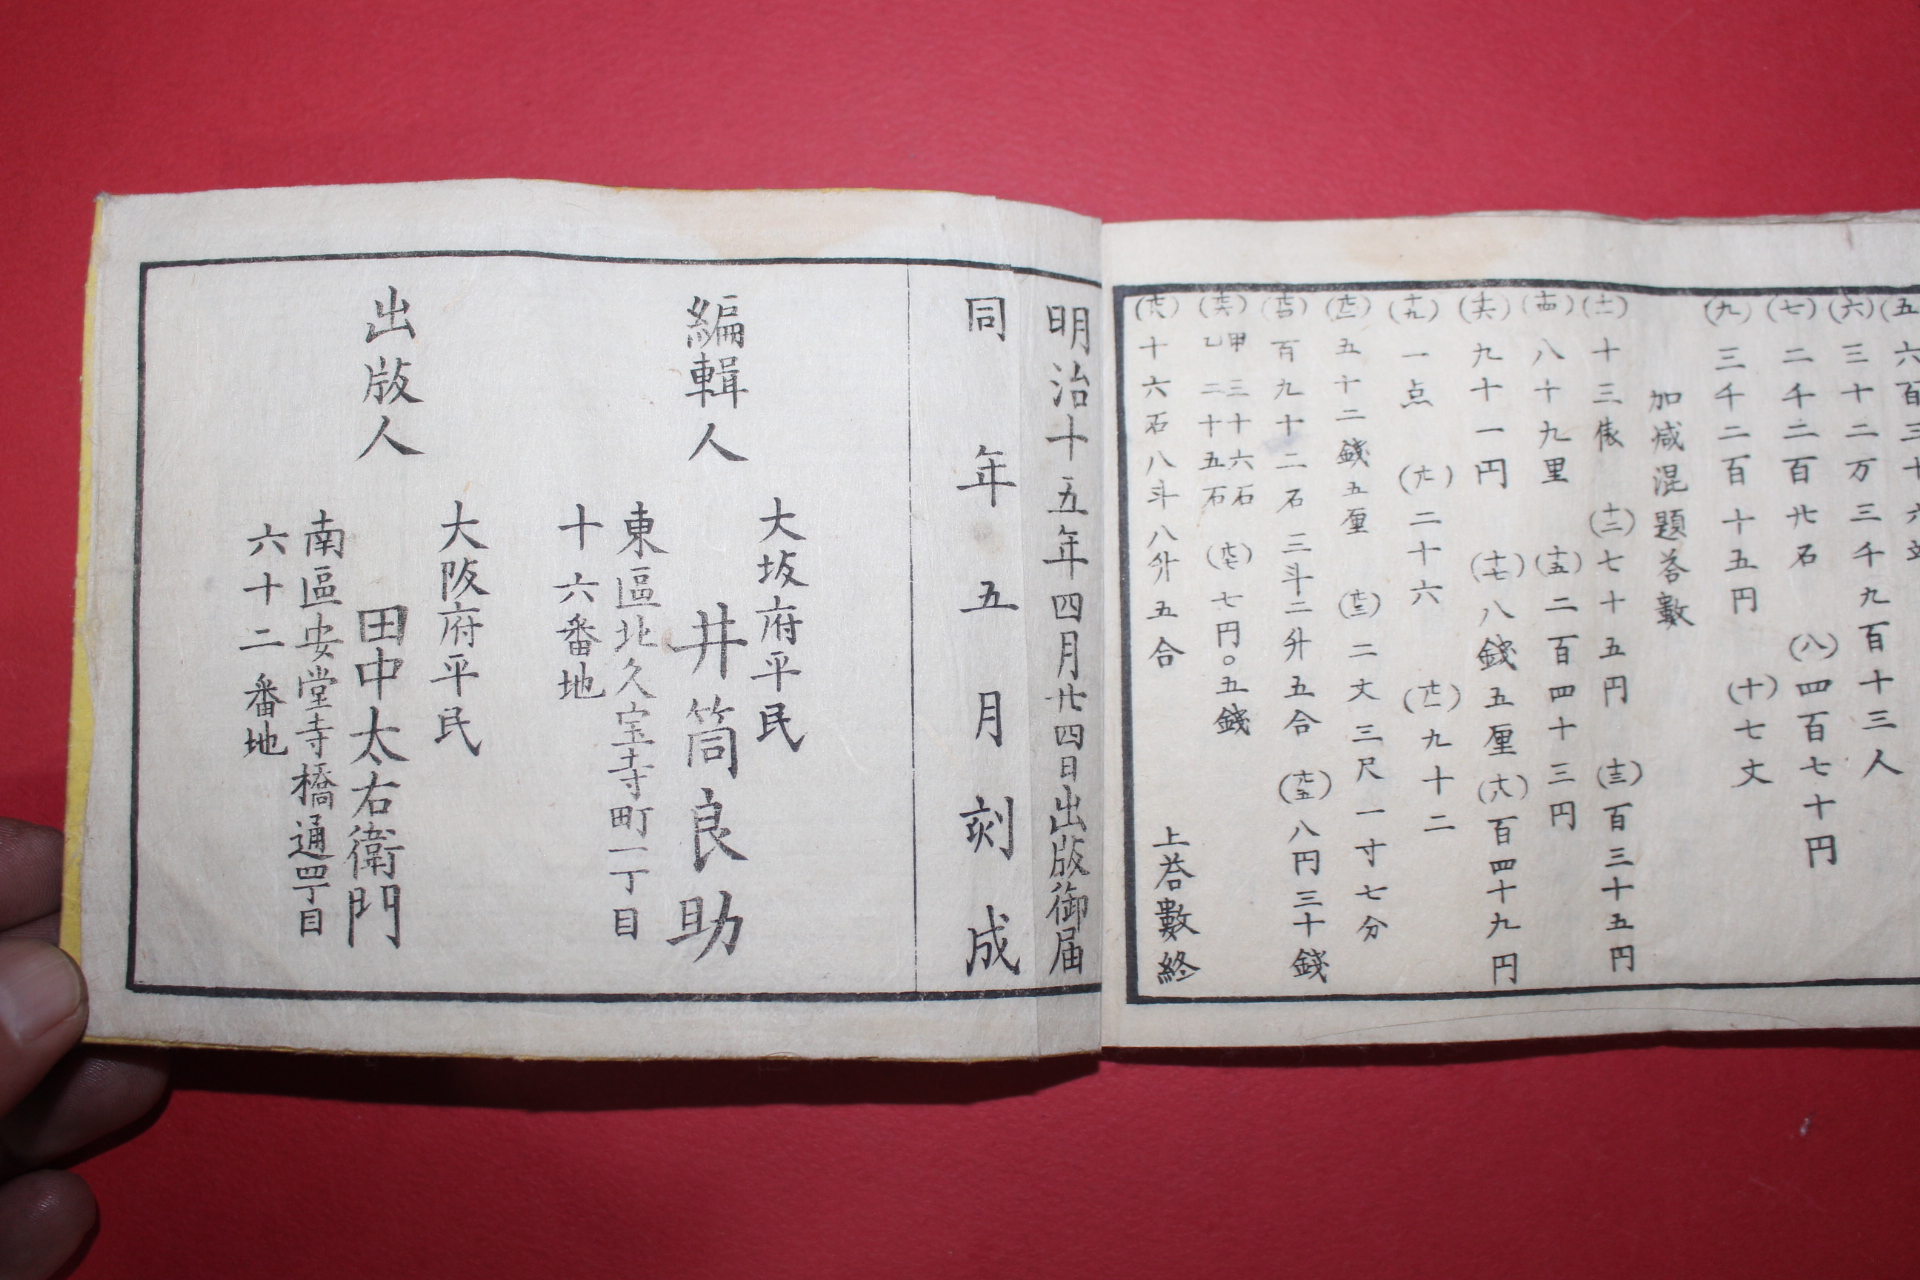 六百三十六
(六)三十二万三千九百十三人
(七)二千二百廿石 (八)四百七十円
(九)三千二百十五円 (十)七丈
加减混題荅數
(十一)十三俵 (十二)七十五円 (十三)百三十五円
(十四)八十九里 (十五)二百四十三円
(十六)九十一円 (十七)八錢五厘 (十八)百四十九円
(十九)一点 (廿)二十六 (廿一)九十二
(廿二)五十二錢五厘 (廿三)二丈三尺一寸七分
(廿四)百九十二石三斗二升五合 (廿五)八円三十錢
(廿六)甲三十六石
乙二十五石 (廿七)七円〇五錢
(廿八)十六石八斗八升五合
上荅數終
明治十五年四月廿四日出版御届
同年五月刻成
編輯人
大坂府平民
井筒良助
東區北久宝寺町一丁目
十六番地
出版人
大阪府平民
田中太右衛門
南區安堂寺橋通四丁目
六十二番地